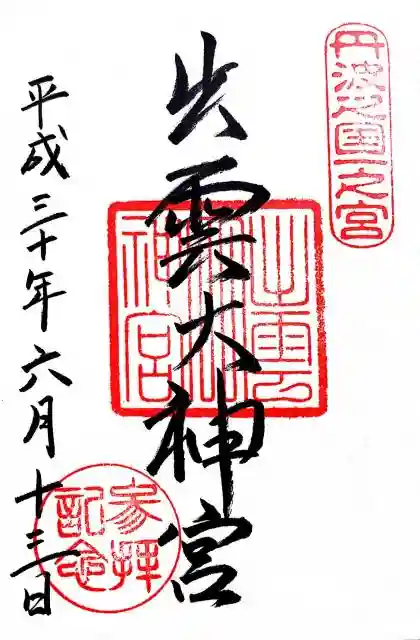 丹波之国一之宮
出雲大神宮
出雲大神宮
参拝
記念
平成三十年六月十三日